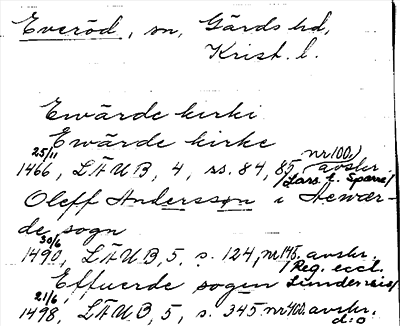 Everöd, sn, Gärds hd,
Krist. l.
Ewärde kirki
Ewärde kirke
25/11 1466, LÄUB, 4, ss. 84, 85, nr 100, avskr.
/Lars l. Sparre/
Oleff Andersson i Aewær-
de sogn
30/6 1490, LÄUB, 5, s. 124, nr 145. avskr.
/Reg. eccl.
Effuerde sogen Lundensis/
21/6 1498, LÄUB, 5, s. 345 nr 400. avskr.
d:o